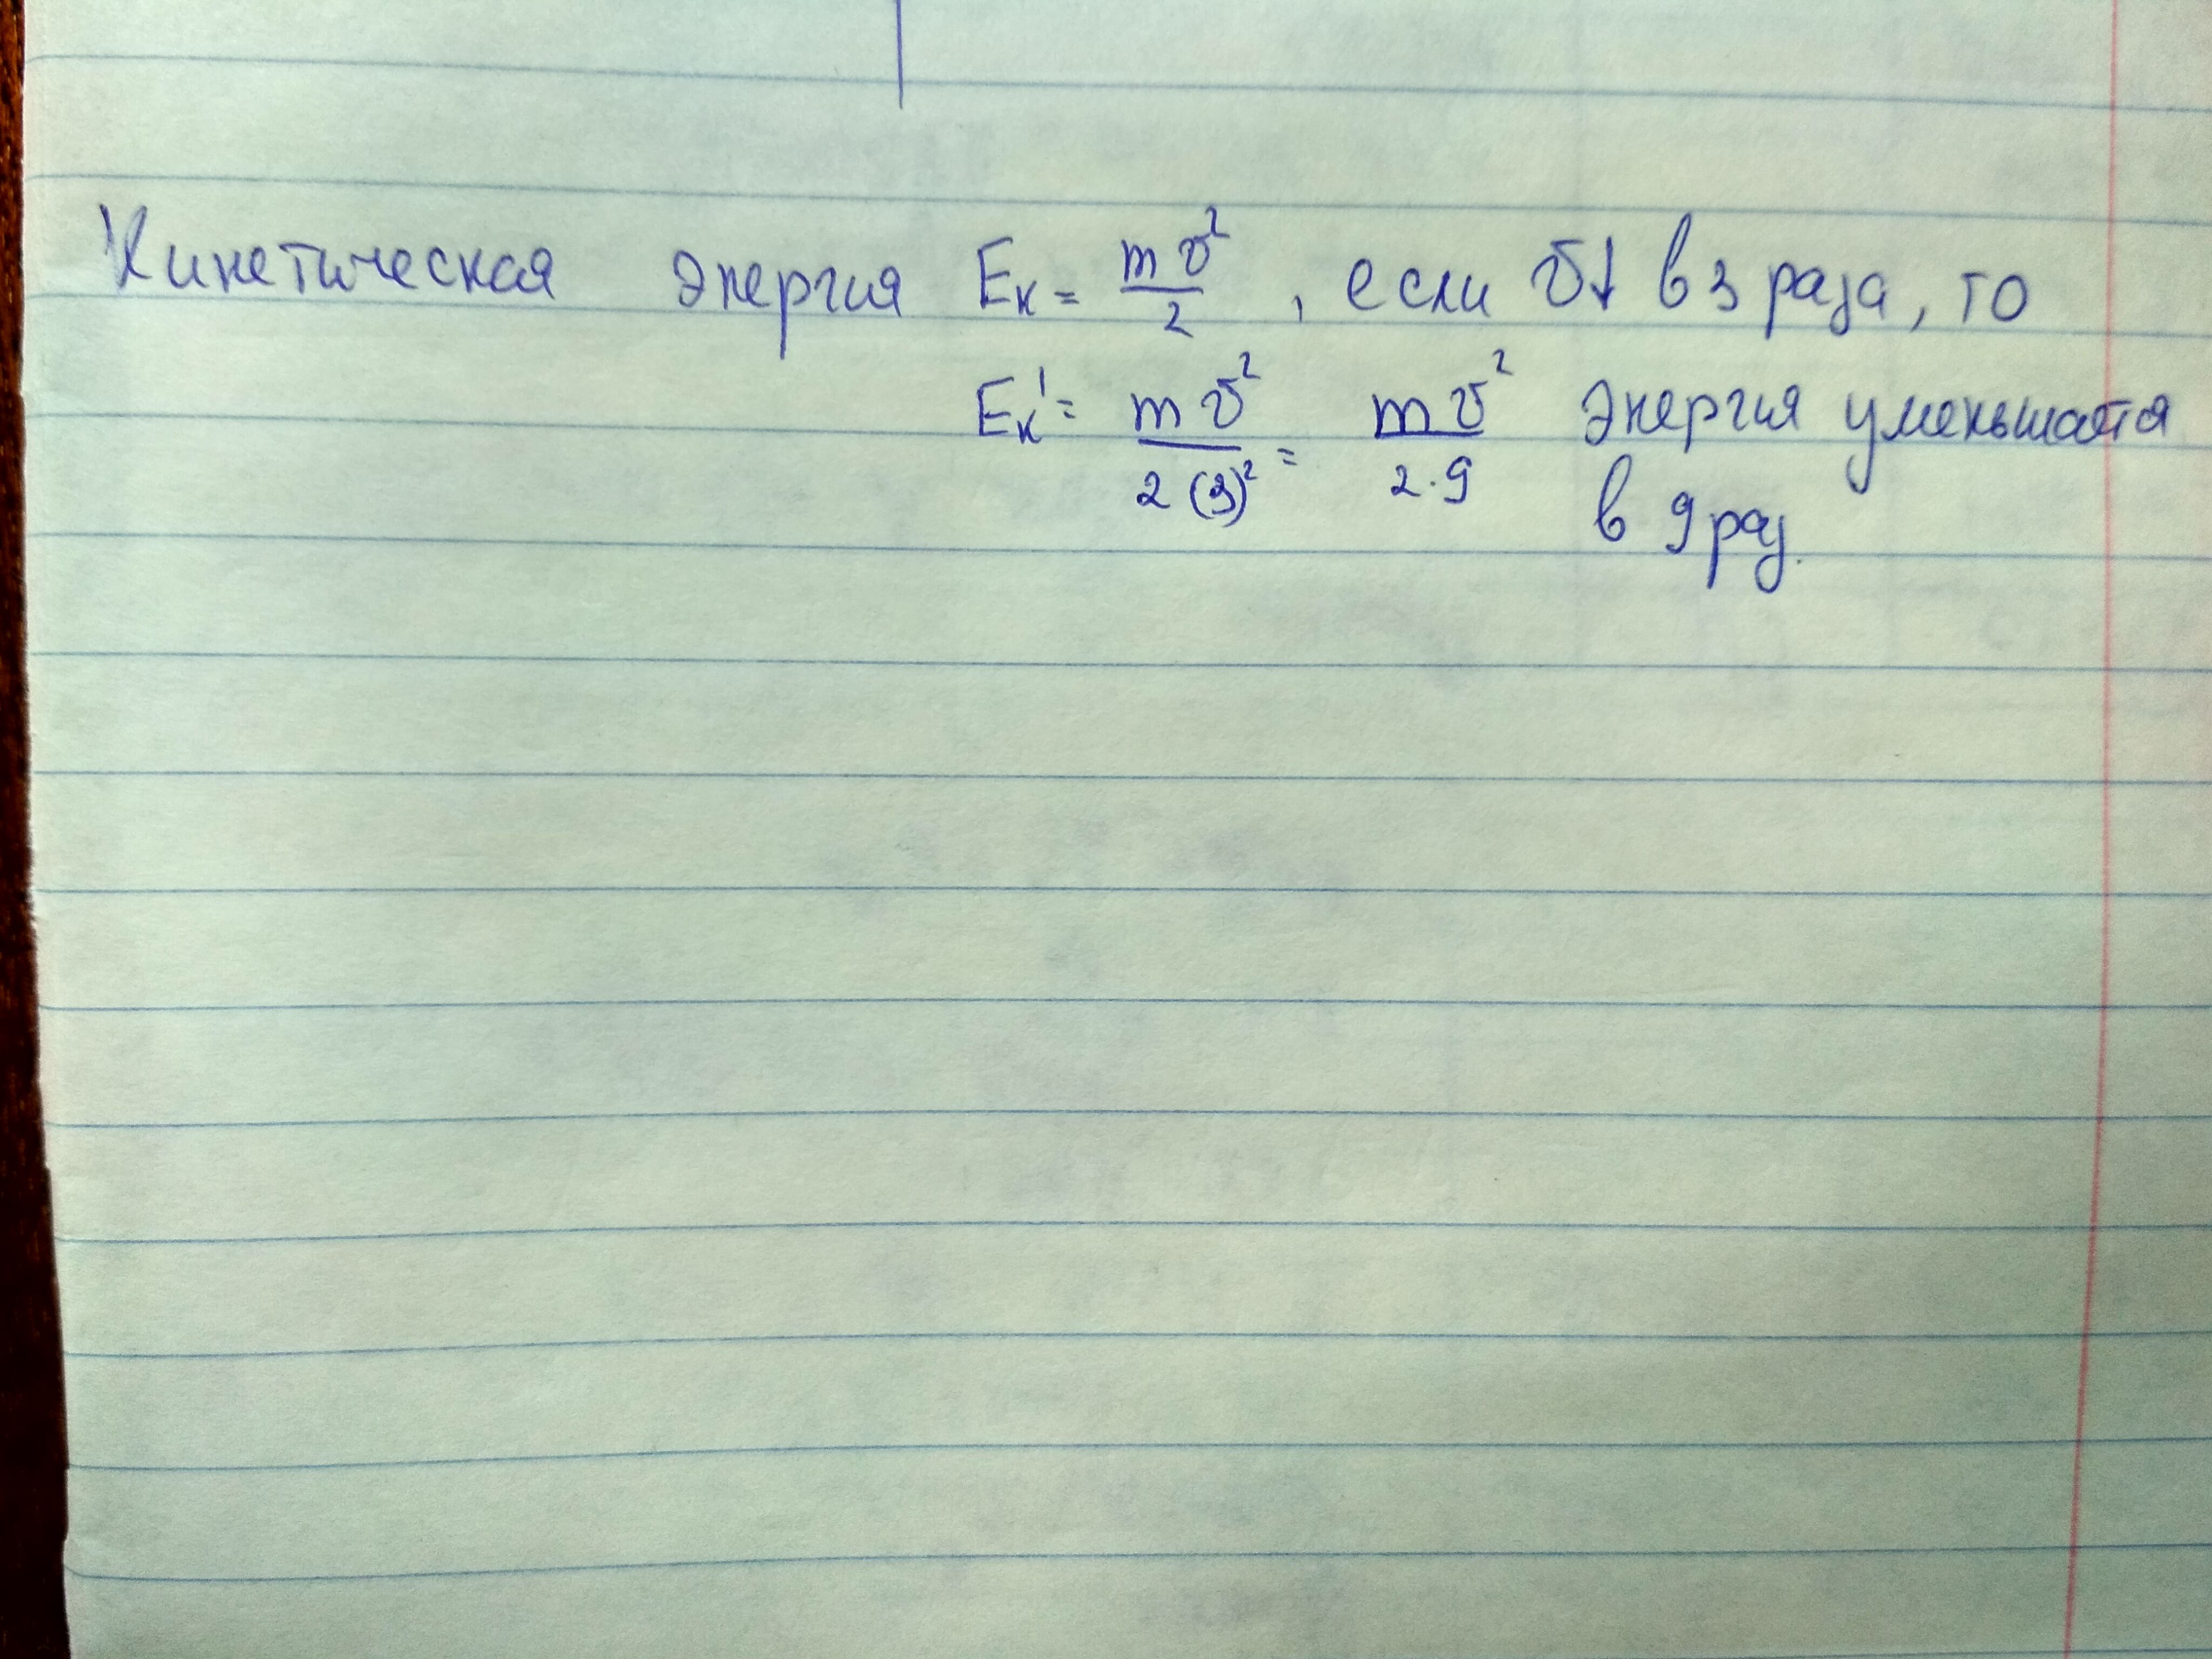 Кинетическая энергия Eк = mv²/2, если v↓ в 3 раза, то
Eк' = mv²/2(3)² = mv²/2·9 энергия уменьшатся
в 9 раз.